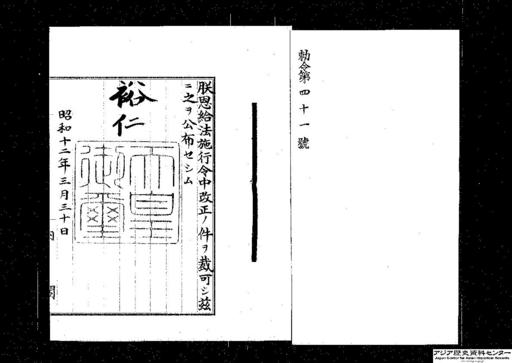 勅令第四十一號
朕恩給法施行令中改正ノ件ヲ裁可シ玆
ニ之ヲ公布セシム
裕仁
天皇御璽
昭和十二年三月三十日
内閣
アジア歴史資料センター
Japan Center for Asian Historical Records